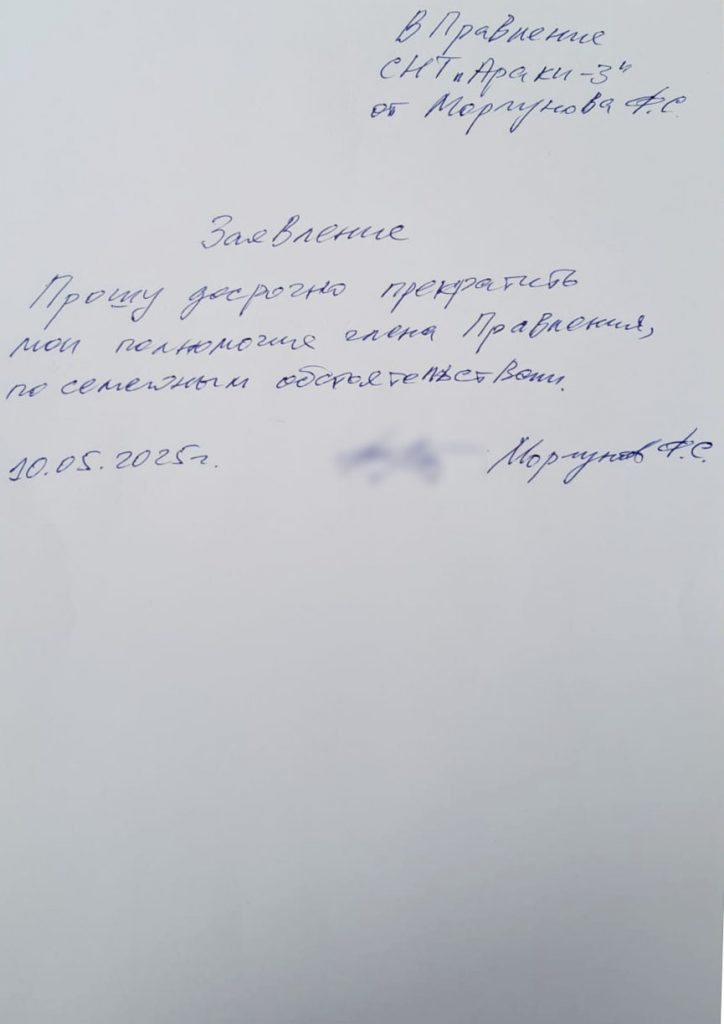 В Правление
СНТ „Араки-3"
от Моргунова Ф.С.
Заявление
Прошу досрочно прекратить
мои полномочие члена Правления,
по семейным обстоятельствам.
10.05.2025г.
Моргунов Ф.С.